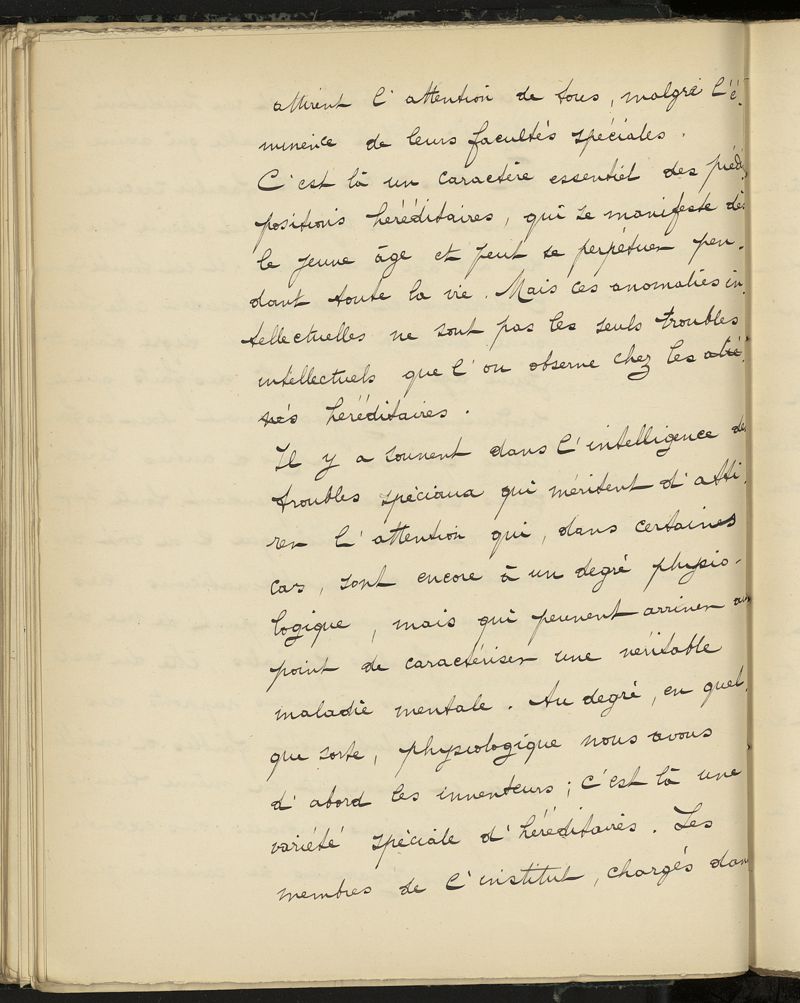 attirent l'attention de tous, malgré l'é-
minence de leurs facultés spéciales.
C'est là un caractère essentiel des prédis
positions héréditaires, qui se manifeste dès
le jeune âge et peut se perpétuer pen-
dant toute la vie. Mais ces anomalies in-
tellectuelles ne sont pas les seuls troubles
intellectuels que l'on observe chez les alié-
nés héréditaires.
Il y a souvent dans l'intelligence des
troubles spéciaux qui méritent d'atti-
rer l'attention qui, dans certaines
cas, sont encore à un degré physio-
logique, mais qui peuvent arriver au
point de caractériser une véritable
maladie mentale. Au degré, en quel-
que sorte, physiologique nous avons
d'abord les inventeurs; c'est là une
variété spéciale d'héréditaires. Les
membres de l'institut, chargés dans